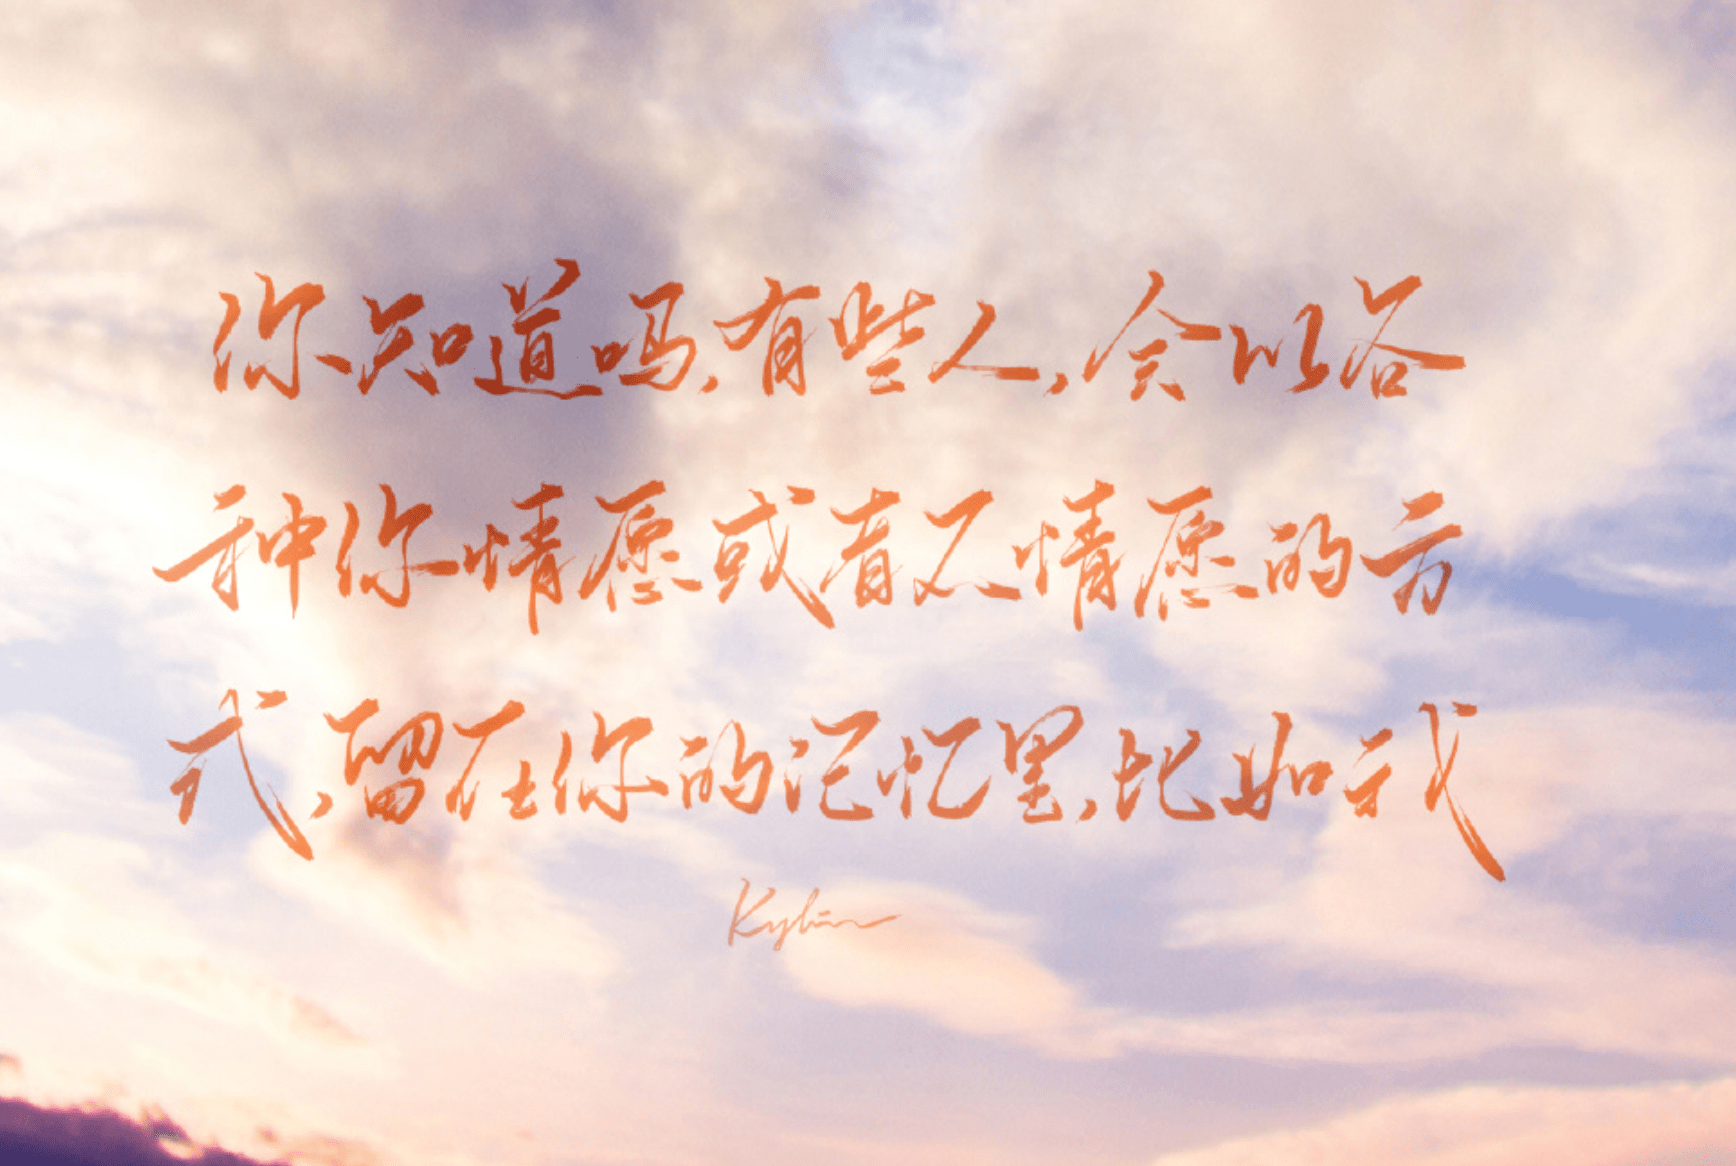 你知道吗,有些人,会以各
种你情愿或者不情愿的方
式,留在你的记忆里,比如我
Kylin